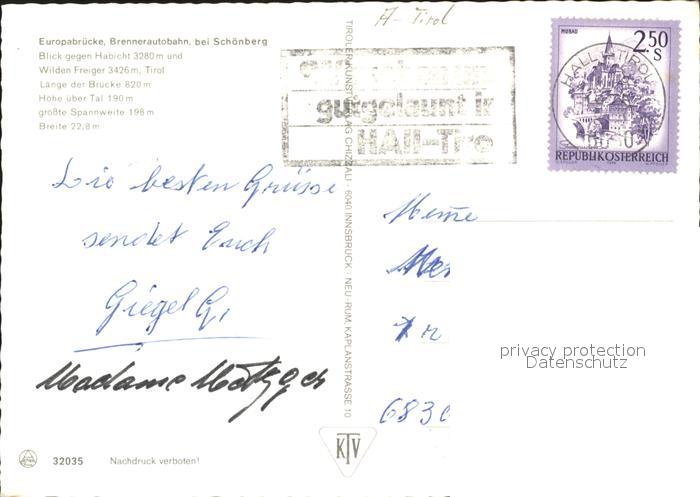 A-Tirol
Europabrücke, Brennerautobahn, bei Schönberg
Blick gegen Habicht 3280 m und
Wilden Freiger 3426 m, Tirol
Länge der Brücke 820 m
Höhe über Tal 190 m
größte Spannweite 198 m
Breite 22,8 m
gutgelaunt in
HALL-Tiro
MURAU
2.50
S
HALL TIROL
REPUBLIK ÖSTERREICH
TIROLER KUNSTVERLAG CHIZZALI · 6040 INNSBRUCK · NEU-RUM, KAPLANSTRASSE 10
Die besten Grüsse
sendet Euch
Giegel G.
Madame
683
privacy protection
Datenschutz
KTV
32035 Nachdruck verboten!